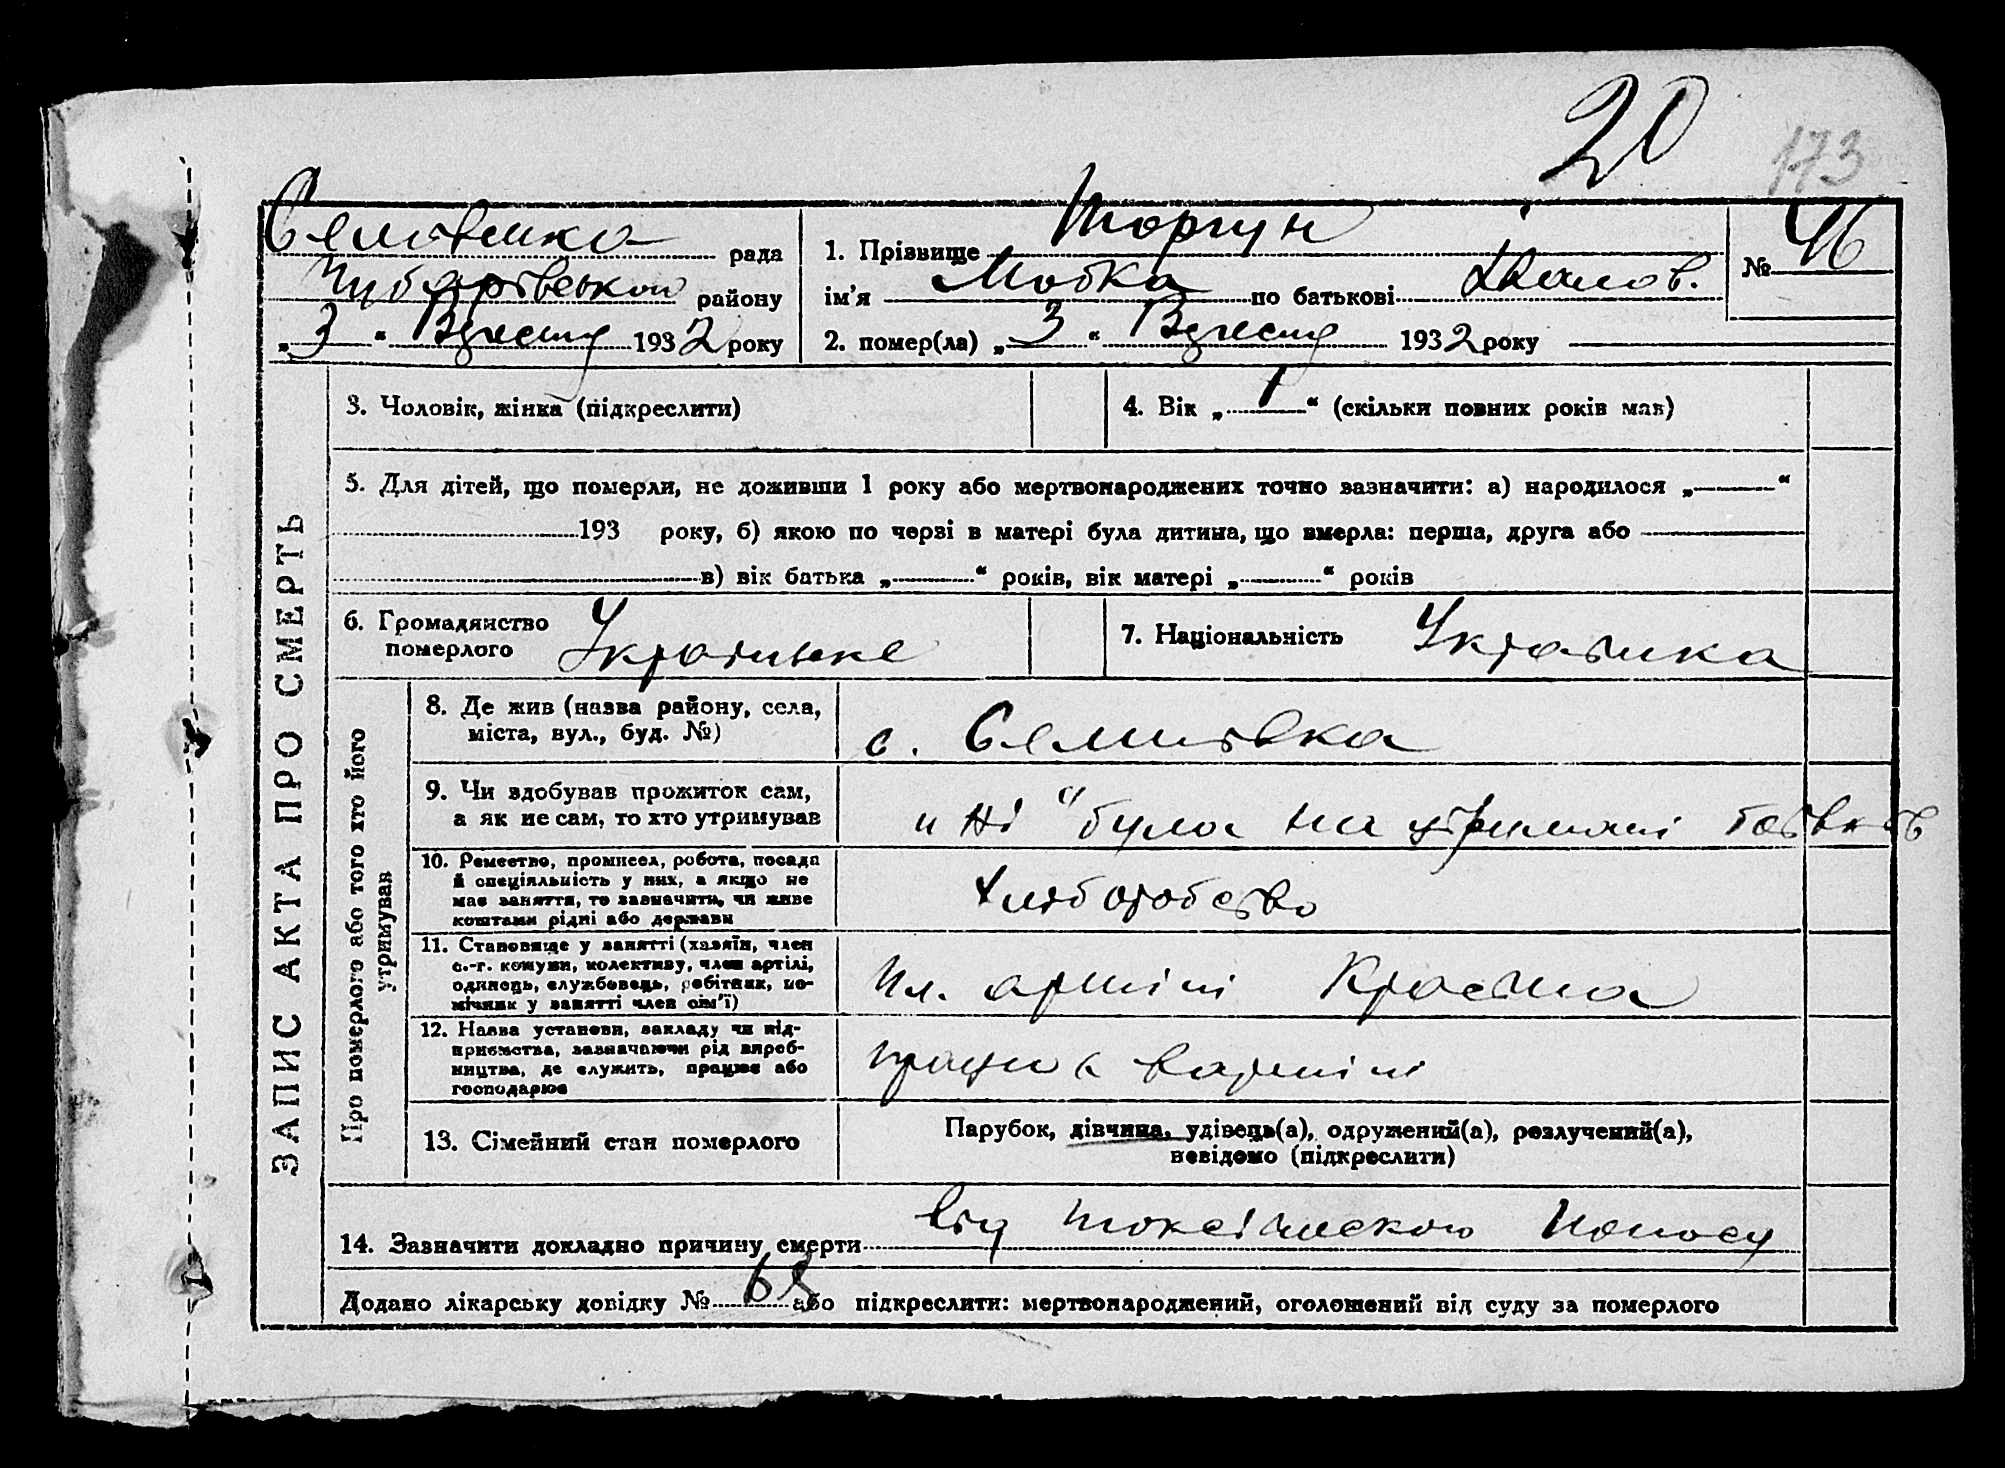 20
173
рада
Чубарівської району
„3“ Вересня 1932 року
1. Прізвище Торгун
№ 46
ім’я Мотка по батькові Іванов.
2. помер(ла) „3“ Вересня 1932 року
ЗАПИС АКТА ПРО СМЕРТЬ
3. Чоловік, жінка (підкреслити)
4. Вік „1“ (скільки повних років мав)
5. Для дітей, що померли, не доживши 1 року або мертвонароджених точно зазначити: а) народилося „ “
193 року, б) якою по черзі в матері була дитина, що вмерла: перша, друга або
в) вік батька „ “ років, вік матері „ “ років
6. Громадянство
померлого Українське
7. Національність Українка
Про померлого або того хто його
утримував
8. Де жив (назва району, села,
міста, вул., буд. №)
с.
9. Чи здобував прожиток сам,
а як не сам, то хто утримував
„ні“ була на утримані батьків
10. Ремество, промисел, робота, посада
й спеціяльність у них, а якщо не
має заняття, то зазначити, чи живе
коштами рідні або держави
Хліборобство
11. Становище у занятті (хазяїн, член
с.-г. комуни, колективу, член артілі,
одинець, службовець, робітник, по-
мічник у занятті член сім’ї)
Чл. артілі
12. Назва установи, закладу чи під-
приємства, зазначаючи рід вироб-
ництва, де служить, працює або
господарює
артілі
13. Сімейний стан померлого
Парубок, дівчина, удівець(а), одружений(а), розлучений(а),
невідомо (підкреслити)
14. Зазначити докладно причину смерти Від токсіческою поносу
Додано лікарську довідку № 63 або підкреслити: мертвонароджений, оголошений від суду за померлого